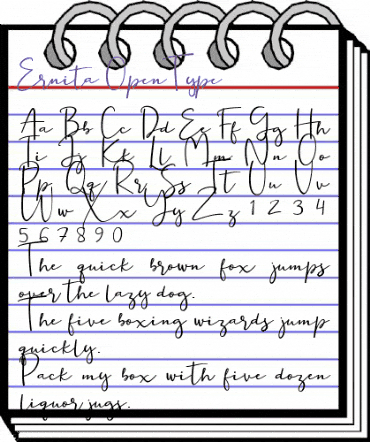 Ernita OpenType
Aa Bb Cc Dd Ee Ff Gg Hh
Ii Jj Kk Ll Mm Nn Oo
Pp Qq Rr Ss Tt Uu Vv
Ww Xx Yy Zz 1 2 3 4
5 6 7 8 9 0
The quick brown fox jumps
over the lazy dog.
The five boxing wizards jump
quickly.
Pack my box with five dozen
liquor jugs.